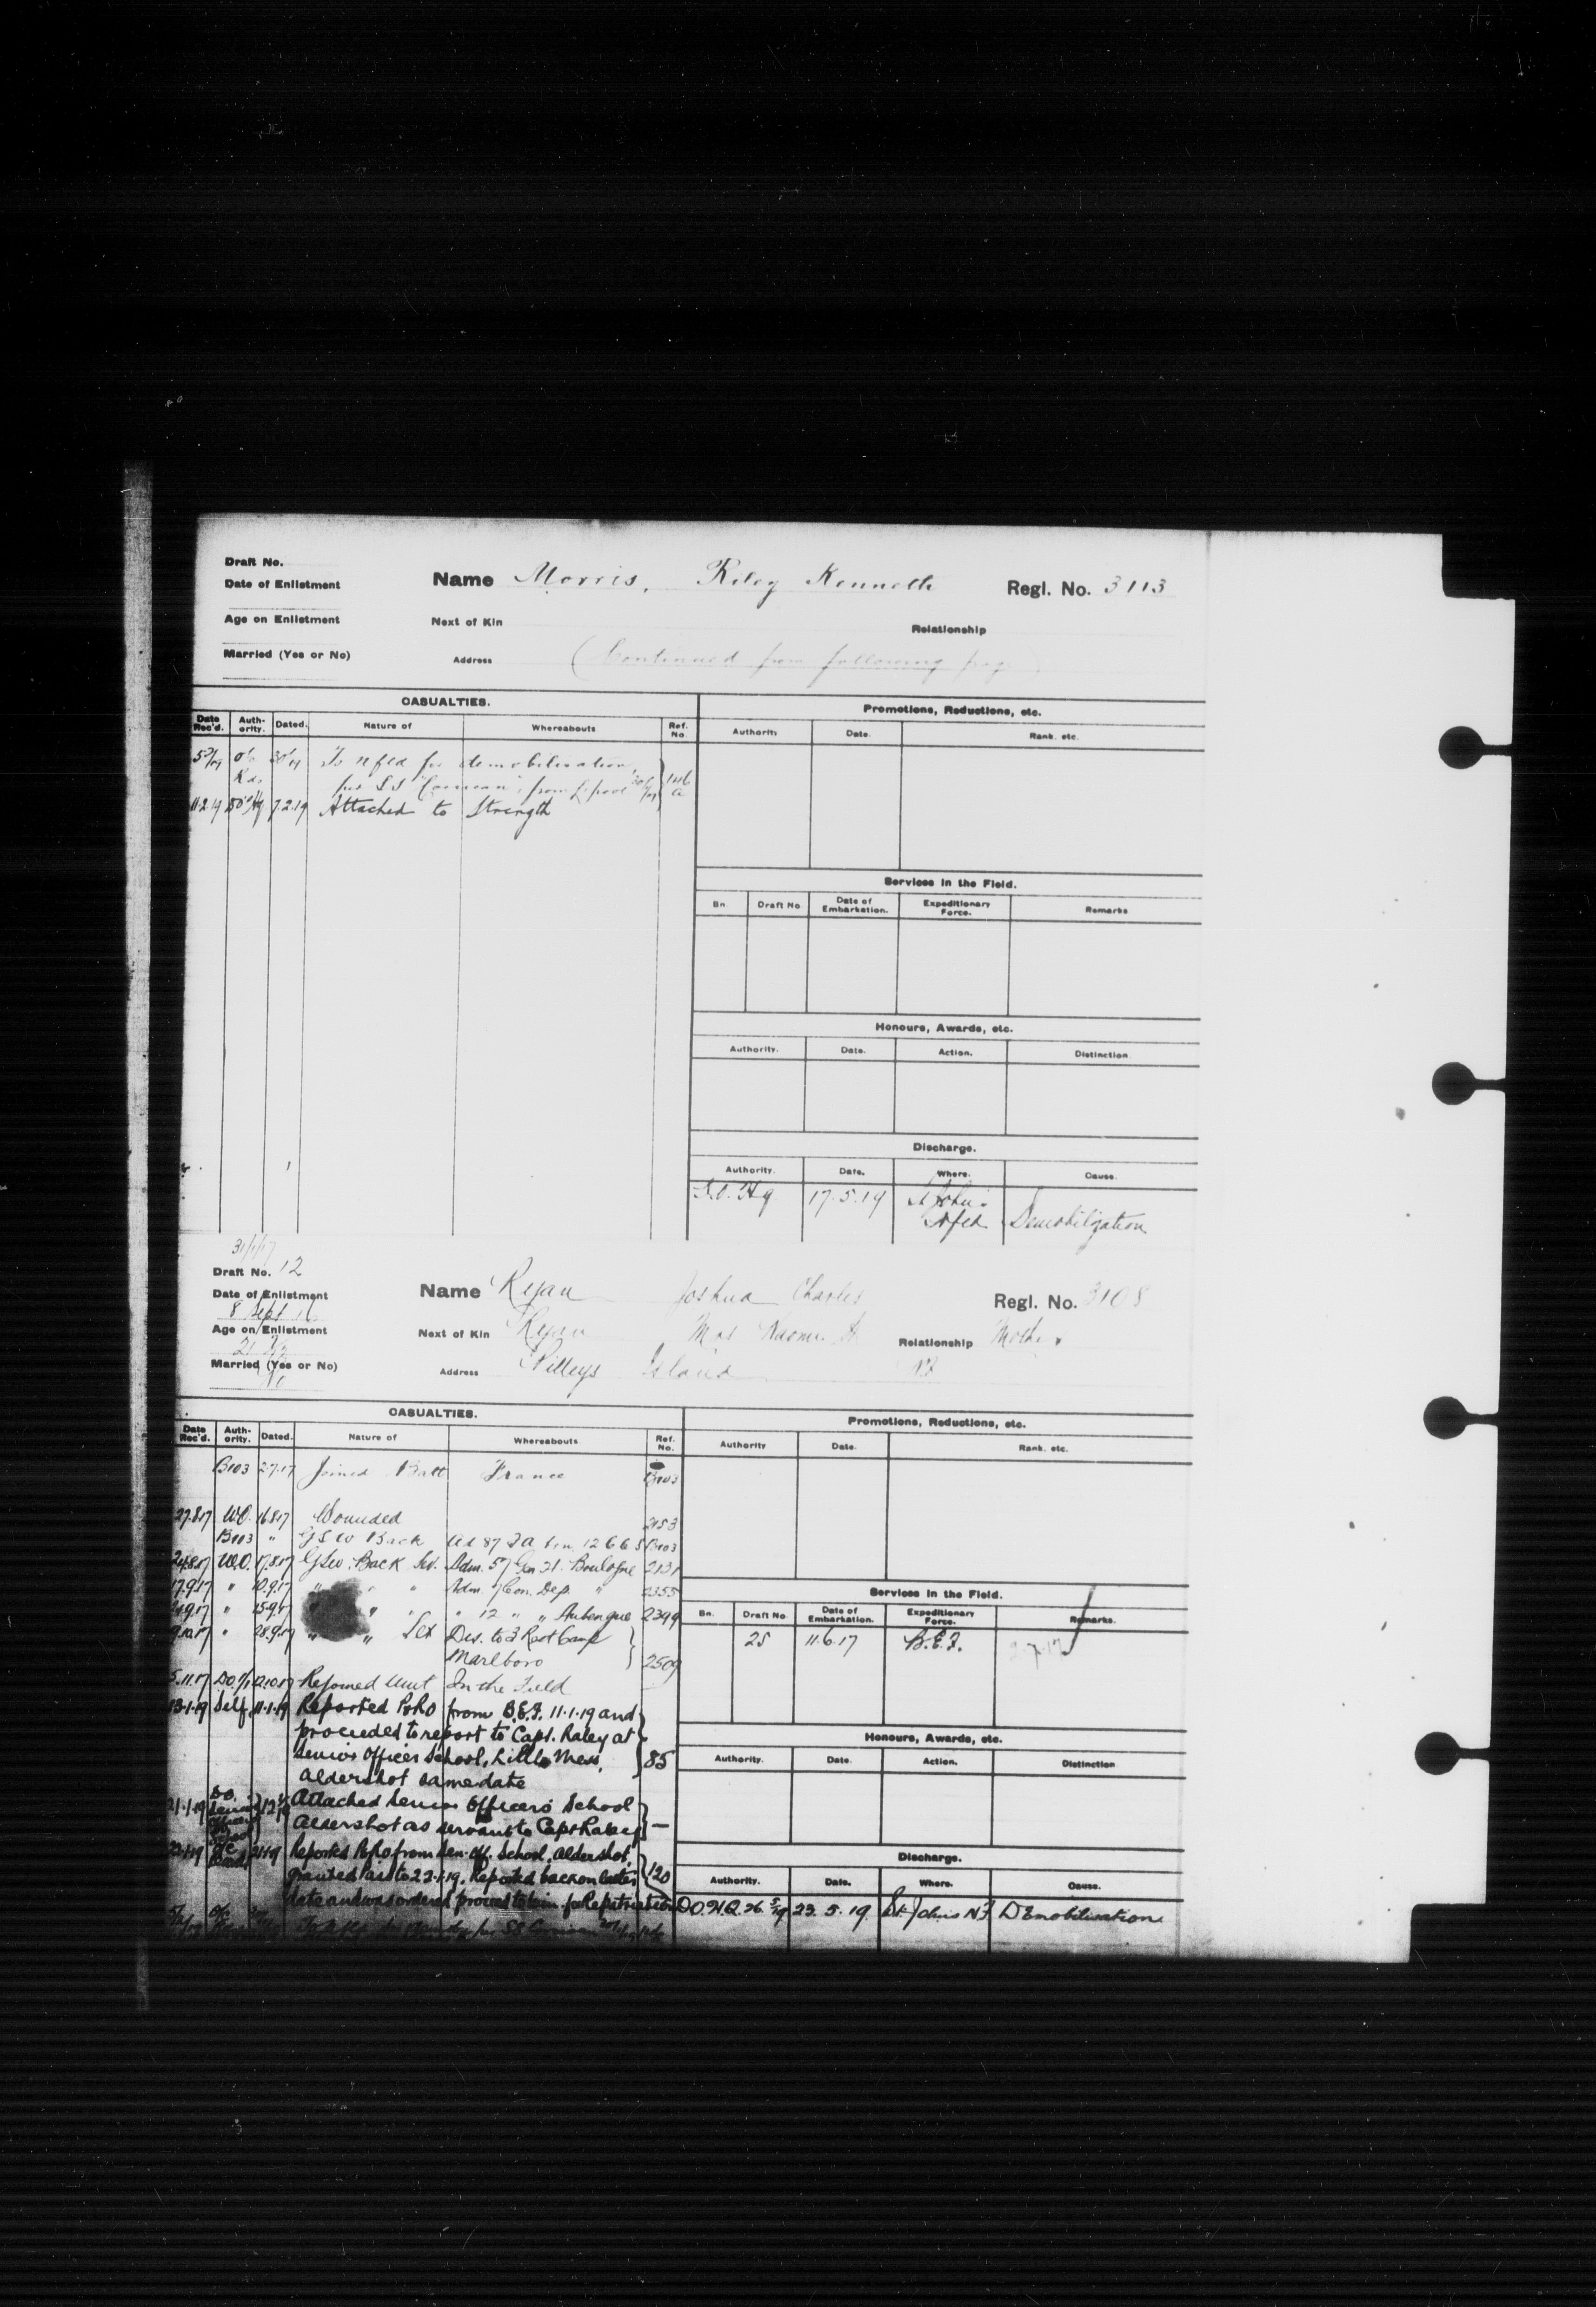 Draft No.
Date of Enlistment
Name Morris, Riley Kenneth Regl. No. 3113
Age on Enlistment
Next of Kin Relationship
Married (Yes or No)
Address (Continued from following page)
CASUALTIES. Promotions, Reductions, etc.
Date Rec'd. Auth-ority. Dated. Nature of Whereabouts Ref. No. Authority Date. Rank. etc.
To nfld for demobilisation
per SS "Corsican" from L'pool
11.2.19 DO Hq 7.2.19 Attached to Strength
Services in the Field.
Bn Draft No Date of Embarkation. Expeditionary Force. Remarks
Honours, Awards, etc.
Authority. Date. Action. Distinction
Discharge.
Authority. Date. Where. Cause.
D.O. Hq 17.5.19 St John's Nfld Demobilization
31/1/17
Draft No. 12
Date of Enlistment
8 Sept 16
Name Ryan Joshua Charles Regl. No. 3108
Age on Enlistment
Next of Kin Ryan Mrs Relationship Mother
Married (Yes or No)
No
Address Pilleys Island NF
CASUALTIES. Promotions, Reductions, etc.
Date Rec'd. Auth-ority. Dated. Nature of Whereabouts Ref. No. Authority Date. Rank. etc.
B103 2.7.17 Joined Batt France B103
27.8.17 W.O. 16.8.17 Wounded 2153
B103 " GSW Back B103
24.8.17 W.O. 17.8.17 GSW. Back Sev. Adm. 57 Gen H. Boulogne 2131
17.9.17 " 10.9.17 " " " Adm. 7 Con. Dep. " 2355
" 15.9.17 " " " " 12 " " Aubengue 2399
9.10.17 " 28.9.17 " " Dis. to 3 Rest Camp
Marlboro 2509
5.11.17 12.10.17 Rejoined Unit In the Field
13.1.19 Self 11.1.19 Reported P&RO from B.E.F. 11.1.19 and
proceeded to report to Capt. Raley at
Senior Officers School, Mess, 85
Aldershot same date
21.1.19 Attached Senior Officers School
Aldershot as servant to Capt Raley —
Reported P&RO from Sen. Off. School, Aldershot,
granted Pass to 22.1.19. Reported back on latter 120
date and was ordered proceed to Win. for Repatriation
Services in the Field.
Bn. Draft No Date of Embarkation. Expeditionary Force. Remarks.
25 11.6.17 B.E.F.
Honours, Awards, etc.
Authority. Date. Action. Distinction
Discharge.
Authority. Date. Where. Cause.
D.O. H.Q. 26 5/19 23.5.19. St. Johns NF DEmobilisation